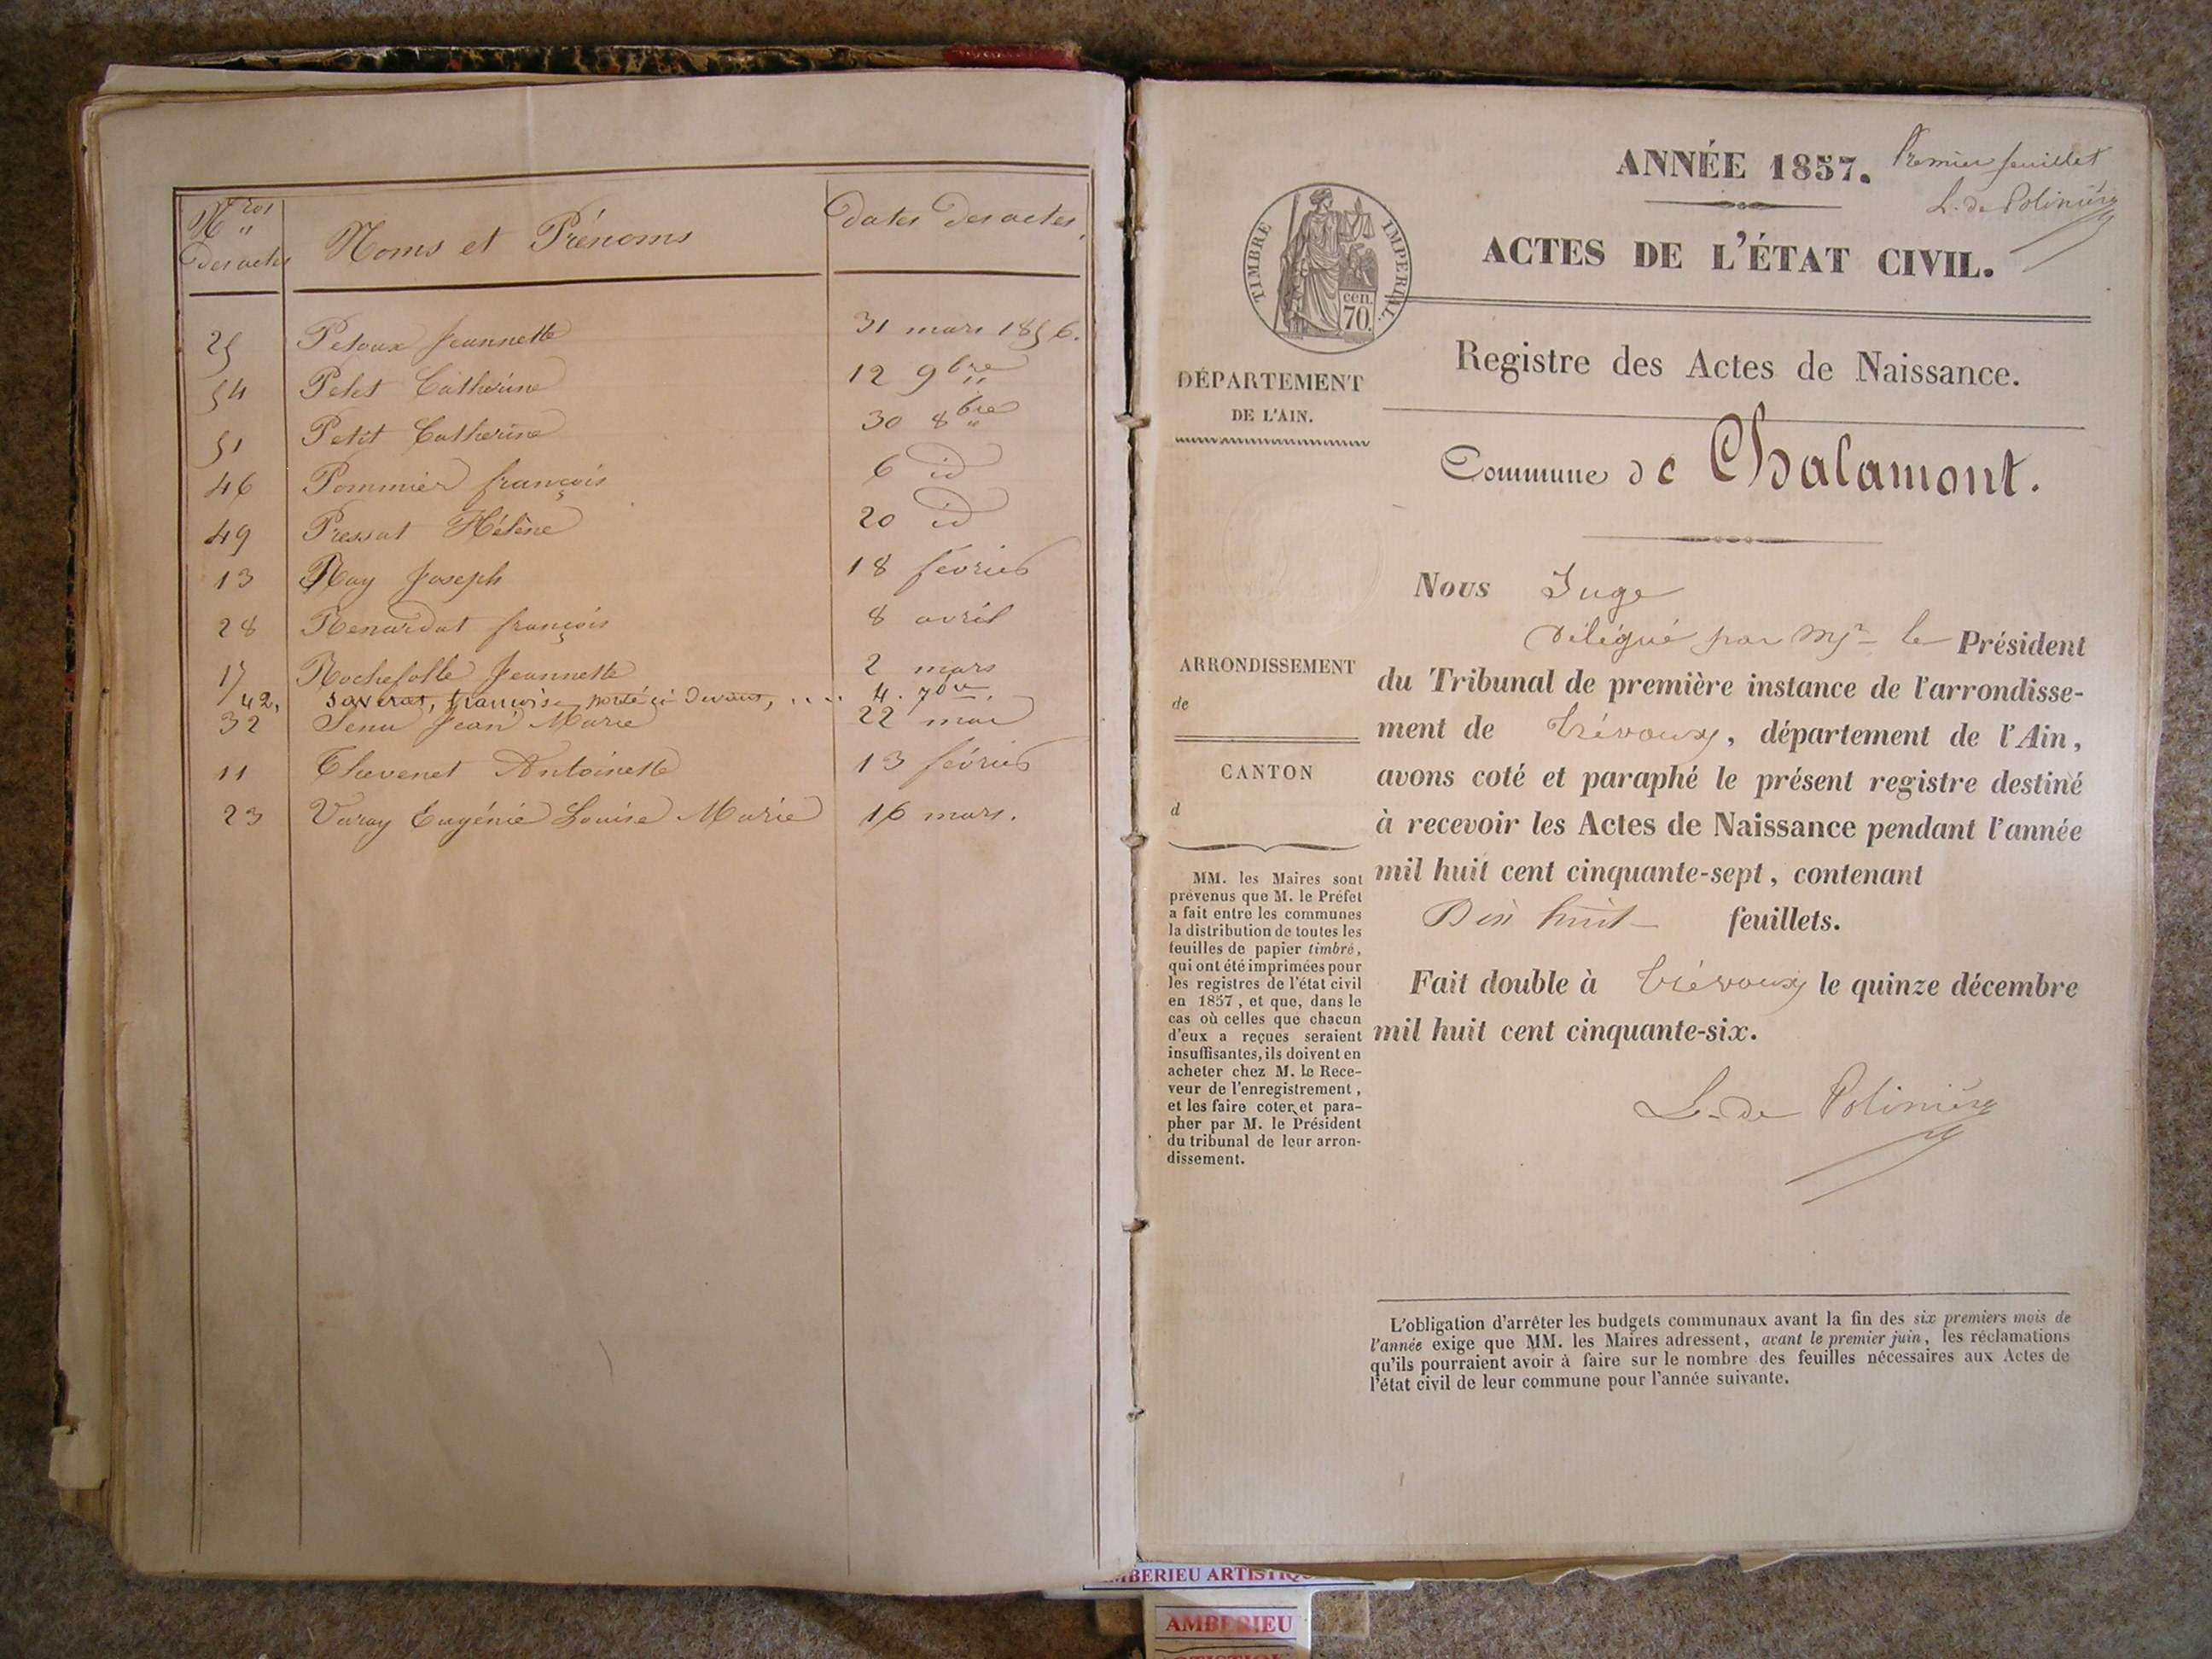 Nros des actes Noms et Prénoms Dates des actes.
25 Petoux Jeannette 31 mars 1856.
54 Petet Catherine 12 9bre "
51 Petit Catherine 30 8bre "
46 Pommier françois 6 id
49 Pressat Hélène 20 id
13 Ray Joseph 18 février
28 Renardat françois 8 avril
17 Rochefolle Jeannette 2 mars
42, Saverat, françoise porté ci devant, .... 4. 7bre.
32 Jean Marie 22 mai
11 Thevenet Antoinette 13 février
23 Varay Eugénie Louise Marie 16 mars.
ANNÉE 1857.
Premier feuillet
L. de Polinière
TIMBRE IMPERIAL.
cen. 70.
ACTES DE L'ÉTAT CIVIL.
Registre des Actes de Naissance.
DÉPARTEMENT
DE L'AIN.
Commune de Chalamont.
Nous Juge
Délégué par Mr le Président
ARRONDISSEMENT
de
CANTON
d
du Tribunal de première instance de l'arrondisse-
ment de Trévoux, département de l'Ain,
avons coté et paraphé le présent registre destiné
à recevoir les Actes de Naissance pendant l'année
mil huit cent cinquante-sept, contenant
Dix huit feuillets.
Fait double à Trévoux le quinze décembre
mil huit cent cinquante-six.
L. de Polinière
MM. les Maires sont
prévenus que M. le Préfet
a fait entre les communes
la distribution de toutes les
feuilles de papier timbré,
qui ont été imprimées pour
les registres de l'état civil
en 1857, et que, dans le
cas où celles que chacun
d'eux a reçues seraient
insuffisantes, ils doivent en
acheter chez M. le Rece-
veur de l'enregistrement,
et les faire coter et para-
pher par M. le Président
du tribunal de leur arron-
dissement.
L'obligation d'arrêter les budgets communaux avant la fin des six premiers mois de
l'année exige que MM. les Maires adressent, avant le premier juin, les réclamations
qu'ils pourraient avoir à faire sur le nombre des feuilles nécessaires aux Actes de
l'état civil de leur commune pour l'année suivante.
AMBERIEU ARTISTIQUE
AMBERIEU